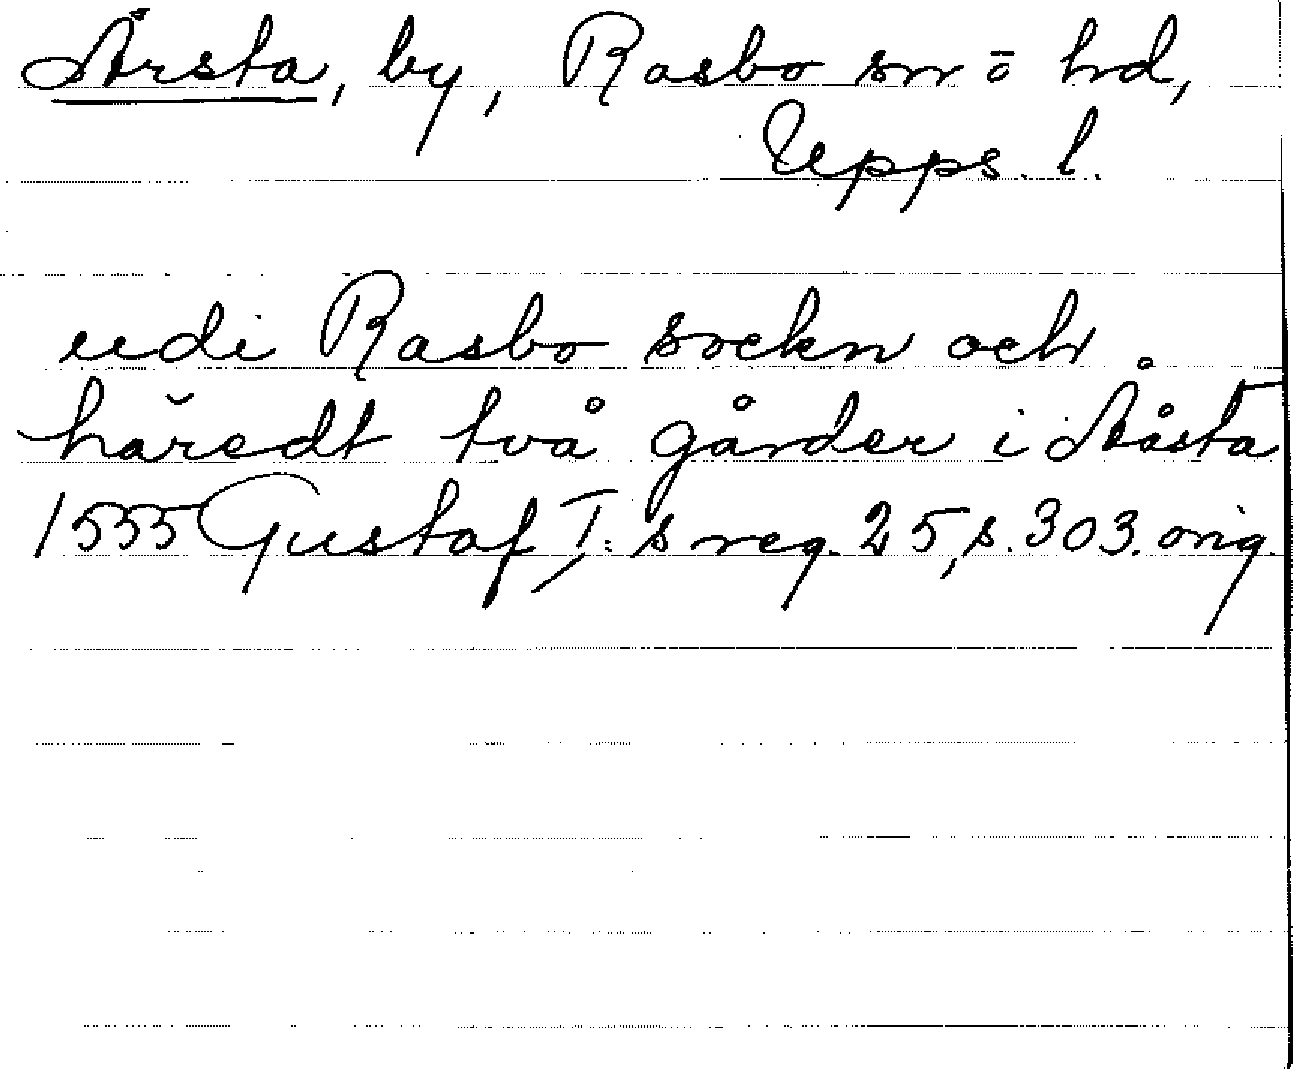 Årsta, by, Rasbo sn o hd,
Upps. l.
udi Rasbo sockn och
häredt två gårder i Åååsta
1555 Gustaf I:s reg. 25, s. 303. orig.